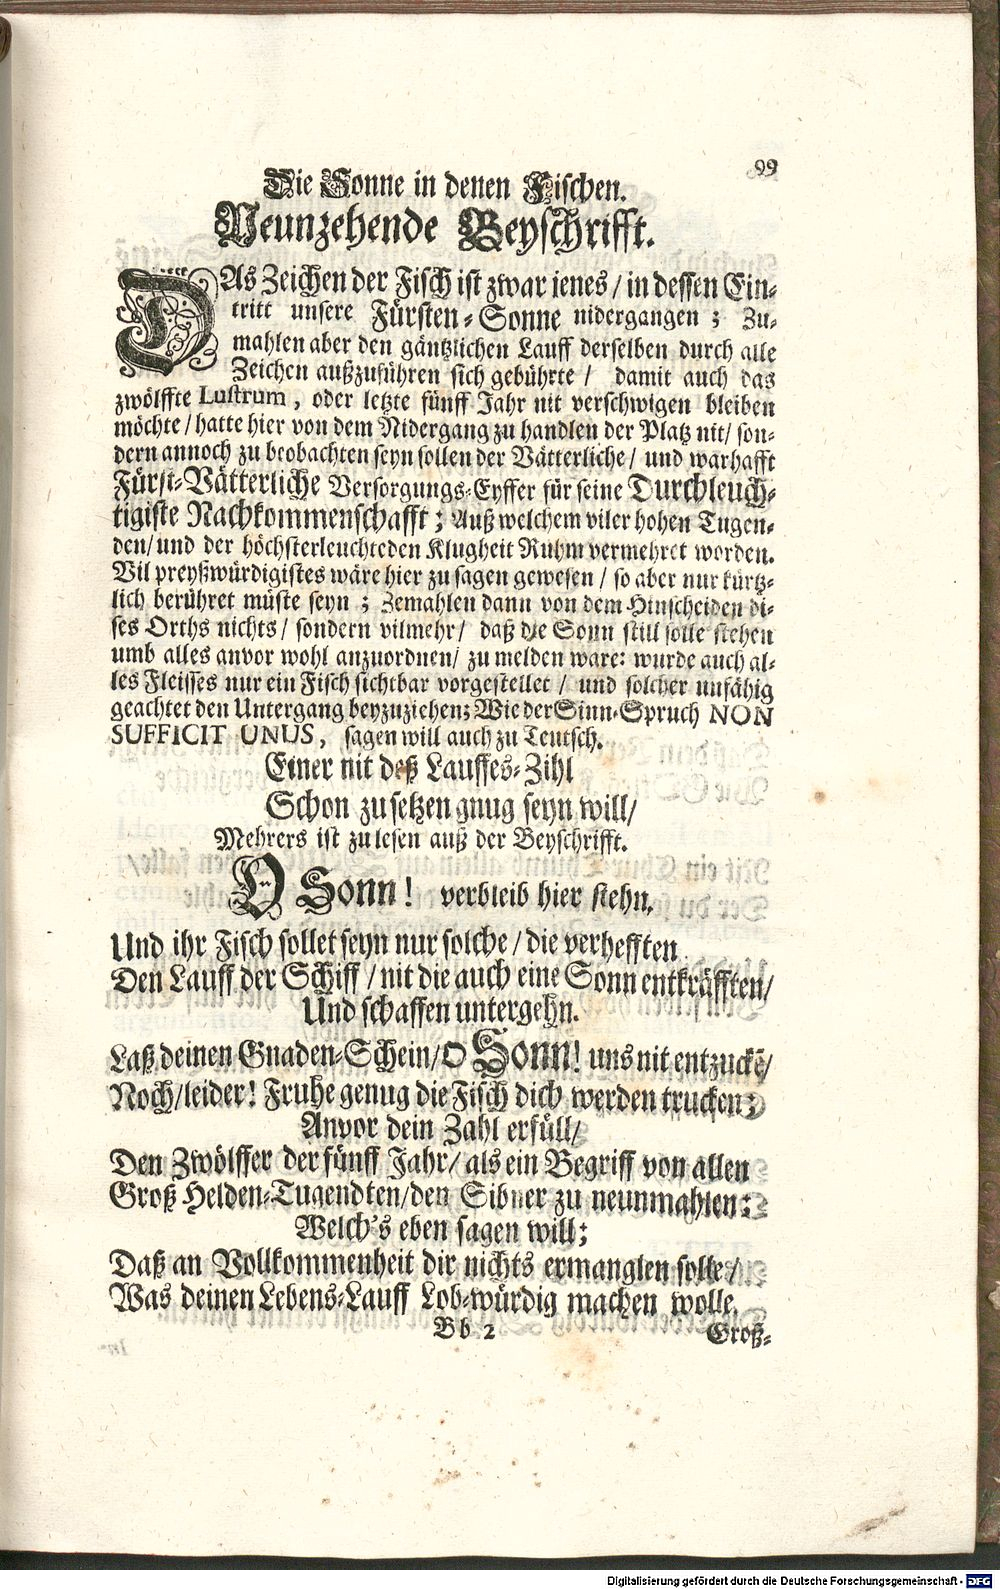 99
Die Sonne in denen Fischen.
Neunzehende Beyschrifft.
DAs Zeichen der Fisch ist zwar jenes / in dessen Ein-
tritt unsere Fürsten-Sonne nidergangen; Zu-
mahlen aber den gäntzlichen Lauff derselben durch alle
Zeichen außzuführen sich gebührte / damit auch das
zwölffte Lustrum, oder letzte fünff Jahr nit verschwigen bleiben
möchte / hatte hier von dem Nidergang zu handlen der Platz nit / son-
dern annoch zu beobachten seyn sollen der Vätterliche / und warhafft
Fürst-Vätterliche Versorgungs-Eyffer für seine Durchleuch-
tigiste Nachkommenschafft; Auß welchem viler hohen Tugen-
den / und der höchsterleuchteden Klugheit Ruhm vermehret worden.
Vil preyßwürdigistes wäre hier zu sagen gewesen / so aber nur kürtz-
lich berühret müste seyn; Zemahlen dann von dem Hinscheiden di-
ses Orths nichts / sondern vilmehr / daß die Sonn still solle stehen
umb alles anvor wohl anzuordnen / zu melden ware: wurde auch al-
les Fleisses nur ein Fisch sichtbar vorgestellet / und solcher unfähig
geachtet den Untergang beyzuziehen; Wie der Sinn-Spruch NON
SUFFICIT UNUS, sagen will auch zu Teutsch.
Einer nit deß Lauffes-Zihl
Schon zu setzen gnug seyn will /
Mehrers ist zu lesen auß der Beyschrifft.
O Sonn! verbleib hier stehn,
Und ihr Fisch sollet seyn nur solche / die verhefften
Den Lauff der Schiff / nit die auch eine Sonn entkräfften /
Und schaffen untergehn.
Laß deinen Gnaden-Schein / O Sonn! uns nit entzuckē /
Noch / leider! Fruhe genug die Fisch dich werden trucken;
Anvor dein Zahl erfüll /
Den Zwölffer der fünff Jahr / als ein Begriff von allen
Groß Helden-Tugendten / den Sibner zu neunmahlen;
Welch's eben sagen will;
Daß an Vollkommenheit dir nichts ermanglen solle /
Was deinen Lebens-Lauff Lob-würdig machen wolle.
Bb 2
Groß-
Digitalisierung gefördert durch die Deutsche Forschungsgemeinschaft - DFG